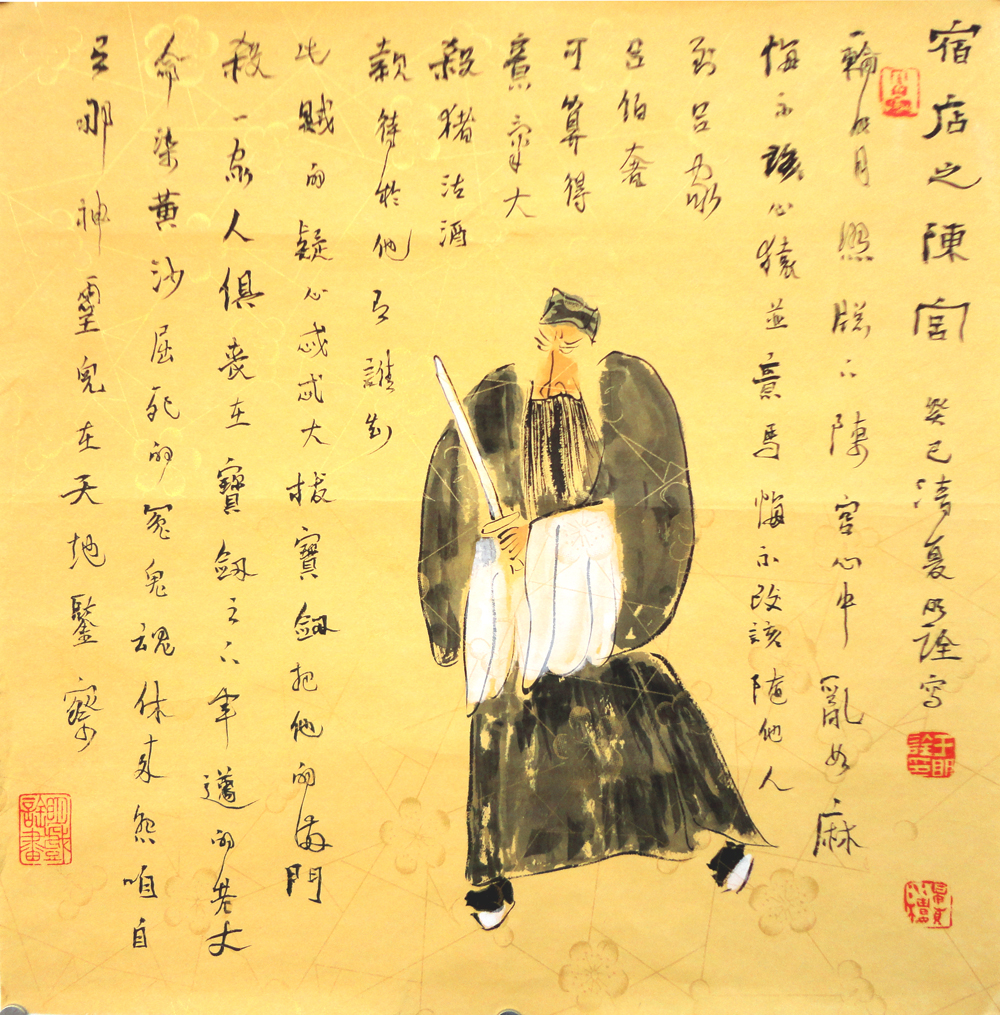 宿店之陳宮 癸巳清夏明詮寫
一輪明月照牕下陳宮心中亂如麻
悔不該心猿並意馬悔不改該随他人
到吕家
吕伯奢
可算得
意氣大
殺猪沽酒
欵待於他又誰知
此賊的疑心忒忒大拔寶劔把他的滿門
殺一家人俱丧在寶劔之下年邁的老丈
命染黄沙屈死的冤鬼魂休来怨咱自
有那神靈兒在天地鑒察
于明詮印